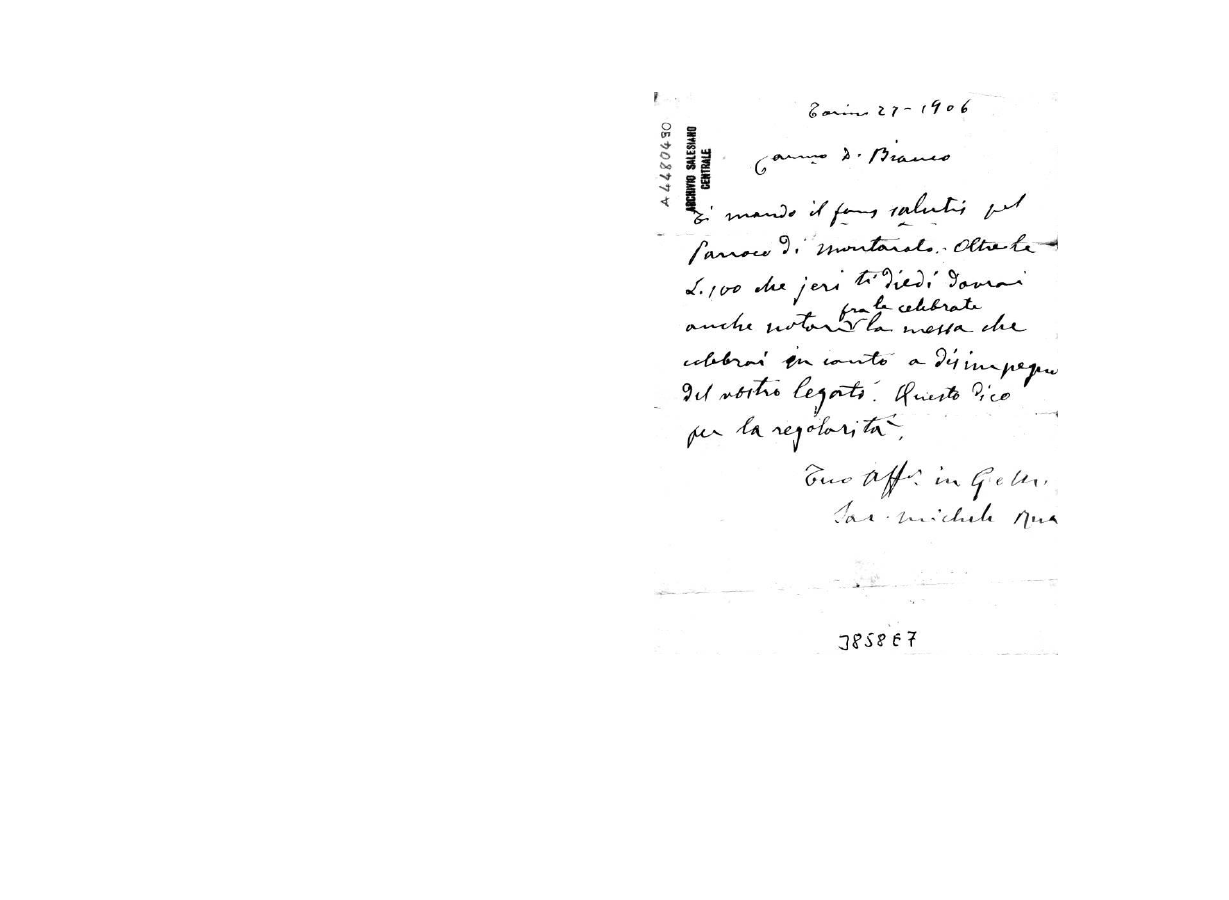 Torino 27-1906
A4480490
ARCHIVIO SALESIANO
CENTRALE
Car.mo D. Bianco
Ti mando il fons salutis pel
Parroco di Montanaro. Oltre le
L. 100 che jeri ti diedi dovrai
anche notare fra le celebrate la messa che
celebrai in canto a disimpegno
del nostro legato. Questo dico
per la regolarità.
Tuo aff.o in G. e M.
Sac. Michele Rua
3858E7